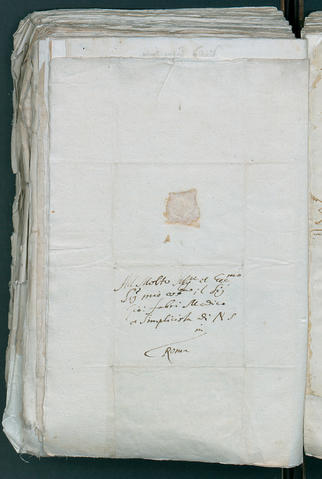 Al Molto Mg.re et Ecc.mo
Sig mio oss.mo il Sig
Gio: fabri Medico
et Simplicista di N S
in
Roma